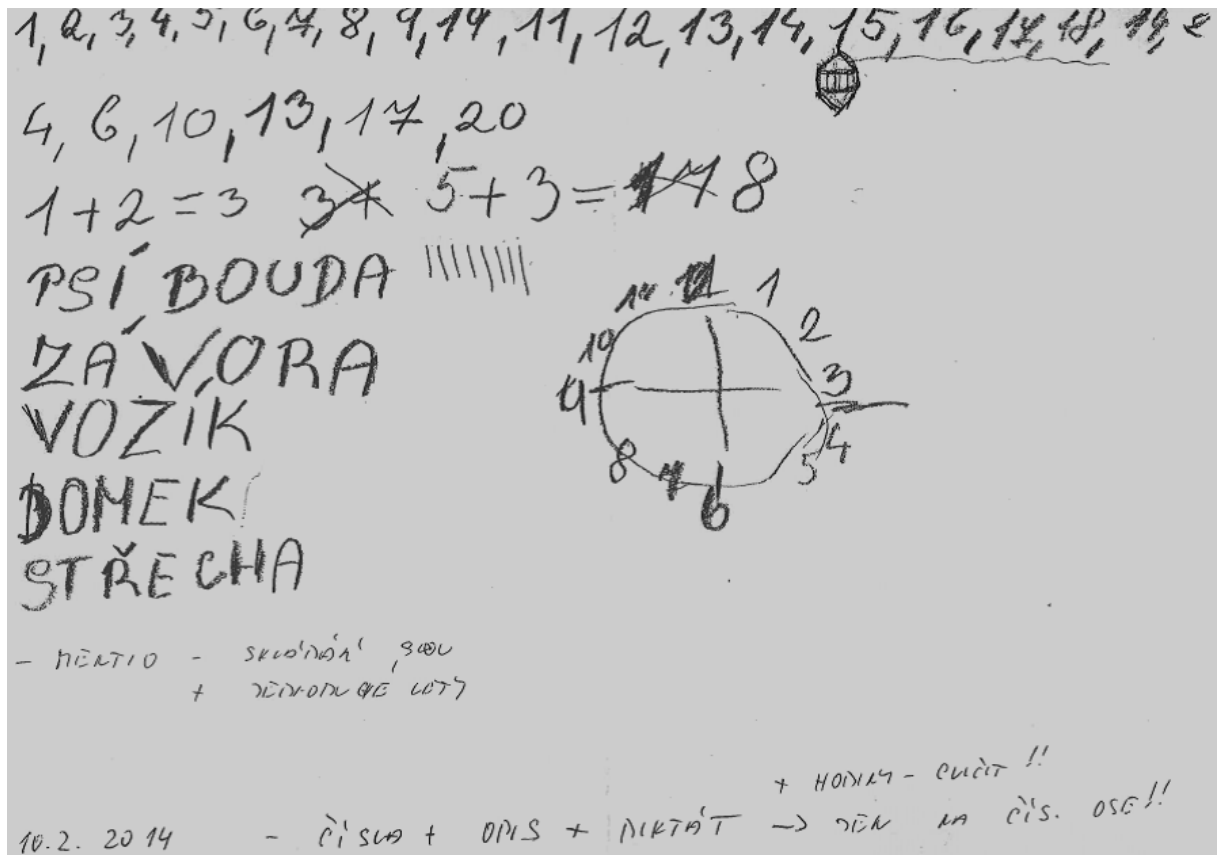 1, 2, 3, 4, 5, 6, 7, 8, 9, 19, 11, 12, 13, 14, 15, 16, 17, 18, 19, 2
4, 6, 10, 13, 17, 20
1+2=3 3+ 5+3=17 8
PSÍ BOUDA
ZÁVORA
VOZÍK
DOMEK
STŘECHA
12 1 2 3 4 5 6 7 8 9 10 11
- MENTIO - SKLÁDÁNÍ SLOV
+ JEDNODUCHÉ VĚTY
+ HODINY - CVIČIT!!
10.2. 2014 - ČÍSLA + OPIS + DIKTÁT -> JEN NA ČÍS. OSE!!